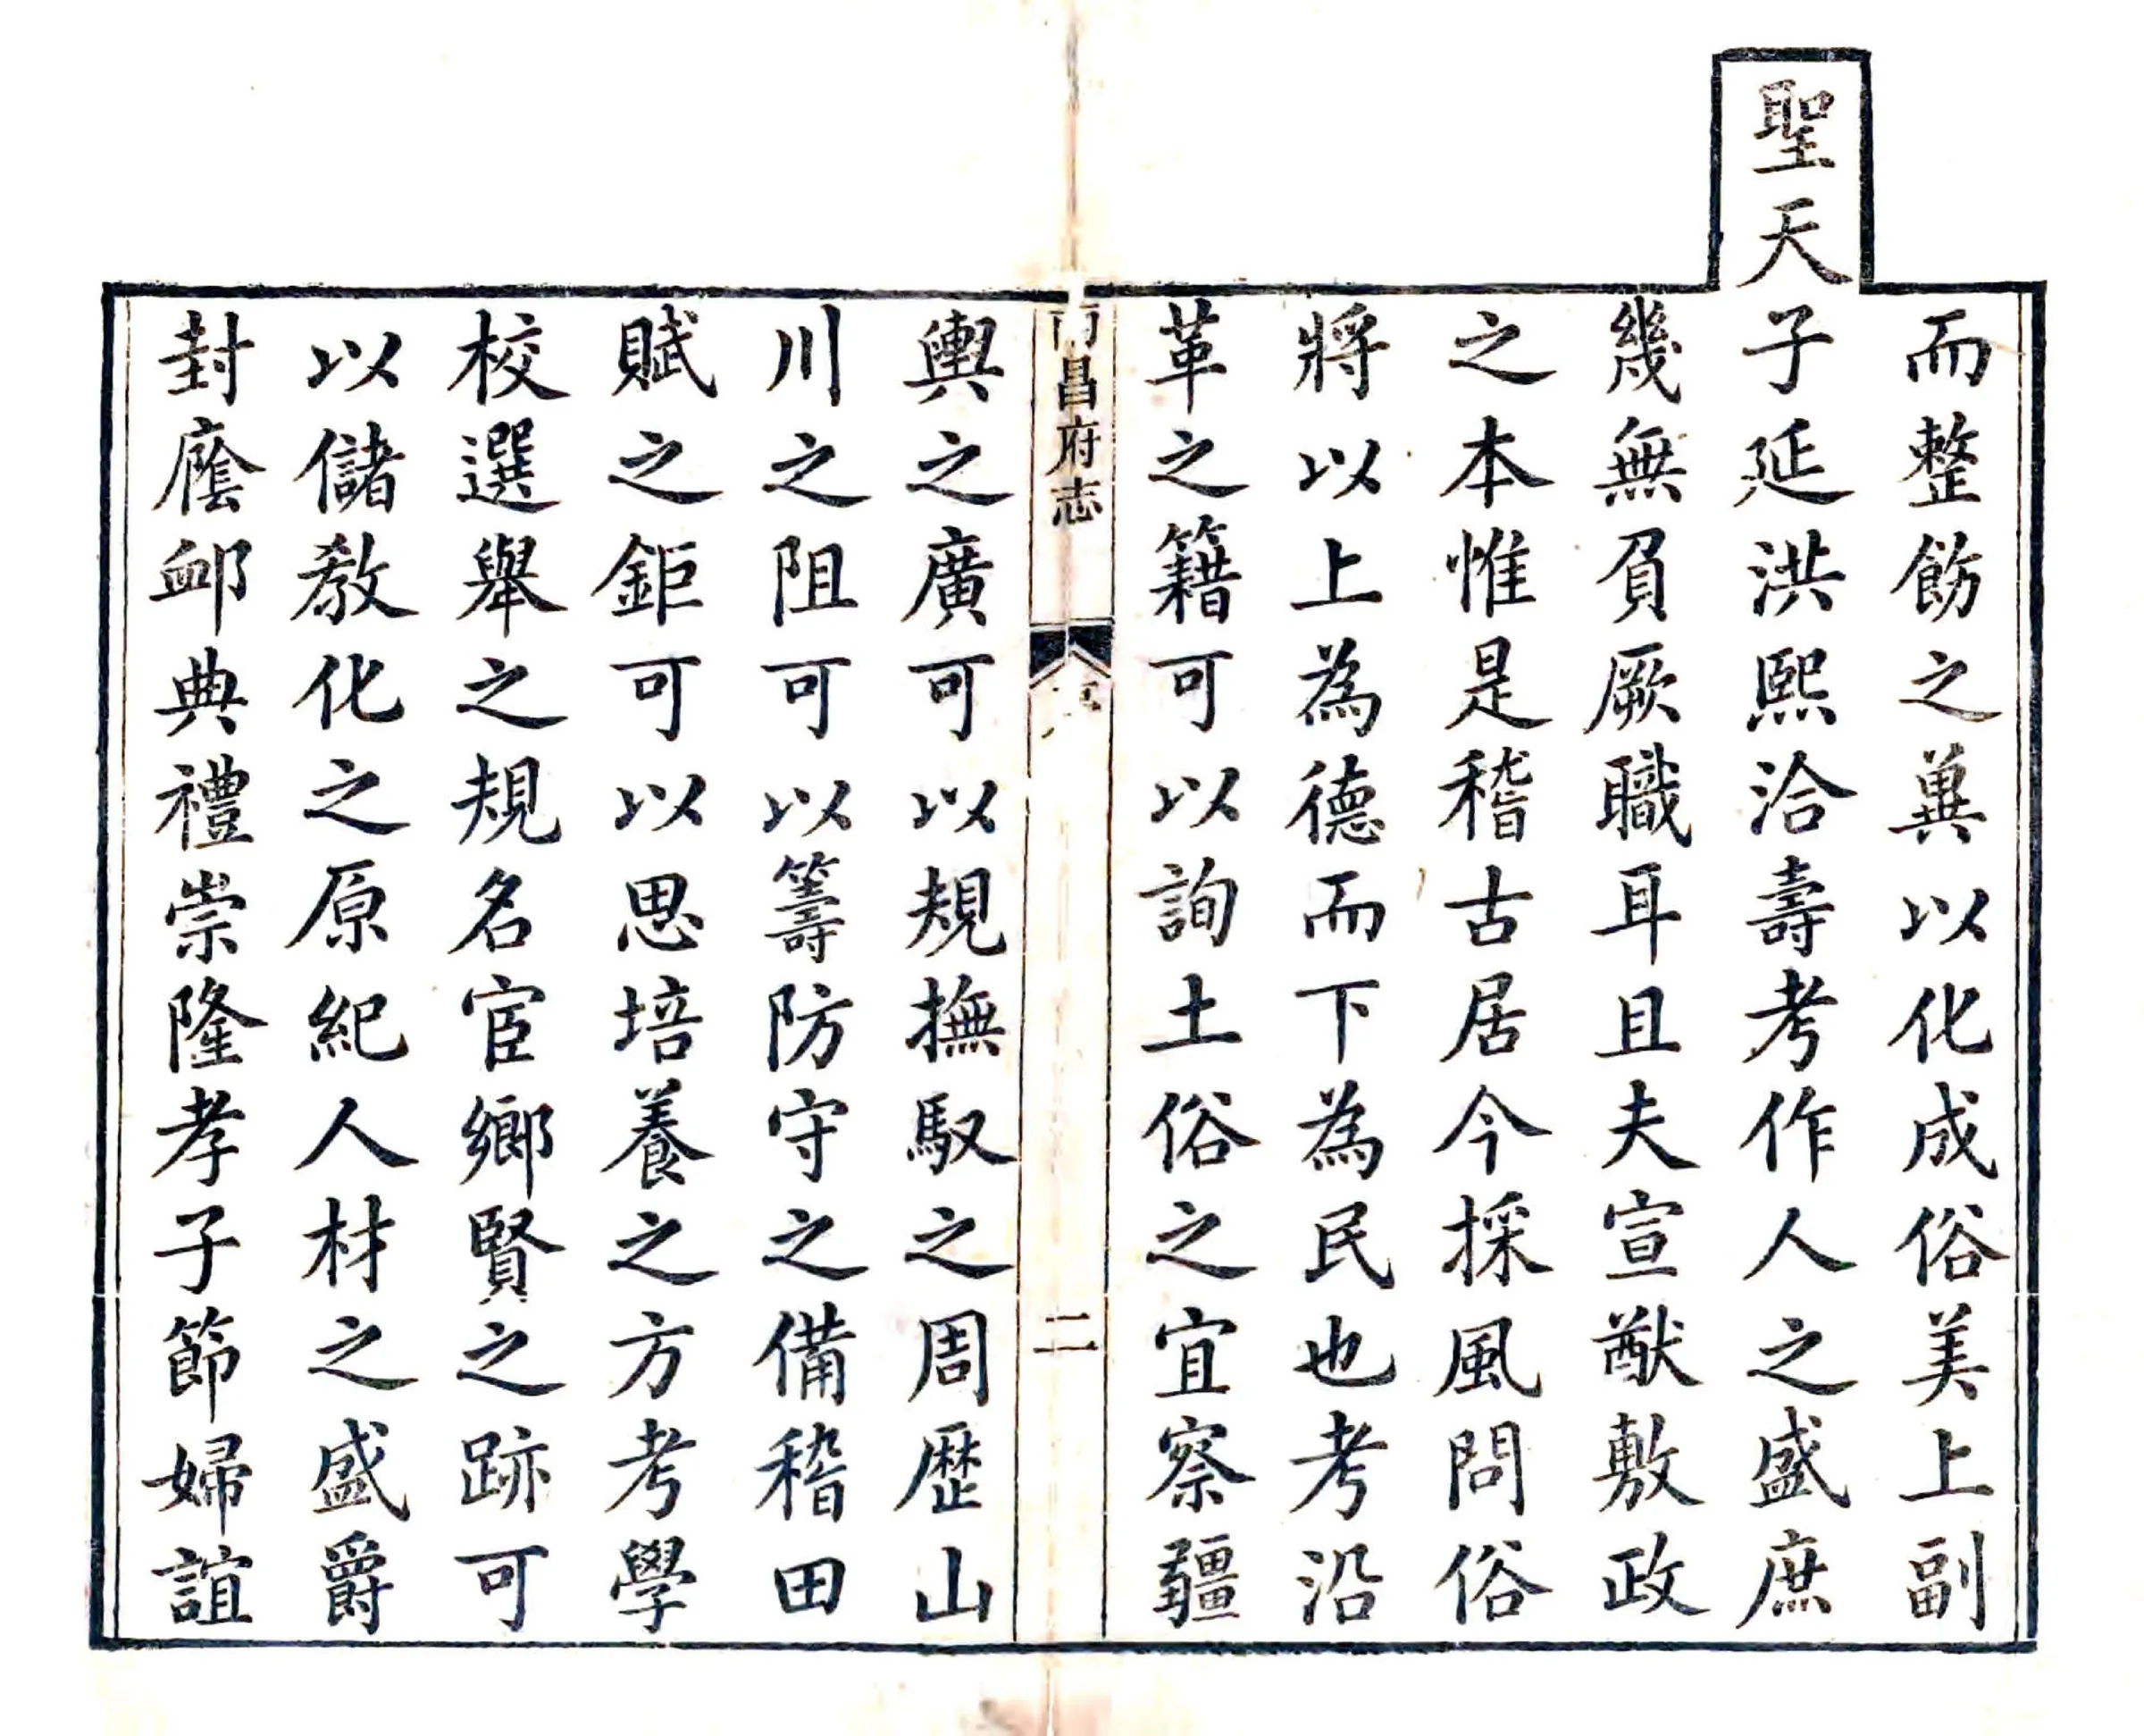 而整飭之冀以化成俗美上副
聖天子延洪熙洽壽考作人之盛庶
幾無負厥職耳且夫宣猷敷政
之本惟是稽古居今採風問俗
將以上為德而下為民也考沿
革之籍可以詢土俗之宜察疆
南昌府志
二
輿之廣可以規撫馭之周歷山
川之阻可以籌防守之備稽田
賦之鉅可以思培養之方考學
校選舉之規名宦鄉賢之跡可
以儲教化之原紀人材之盛爵
封廕卹典禮崇隆孝子節婦誼